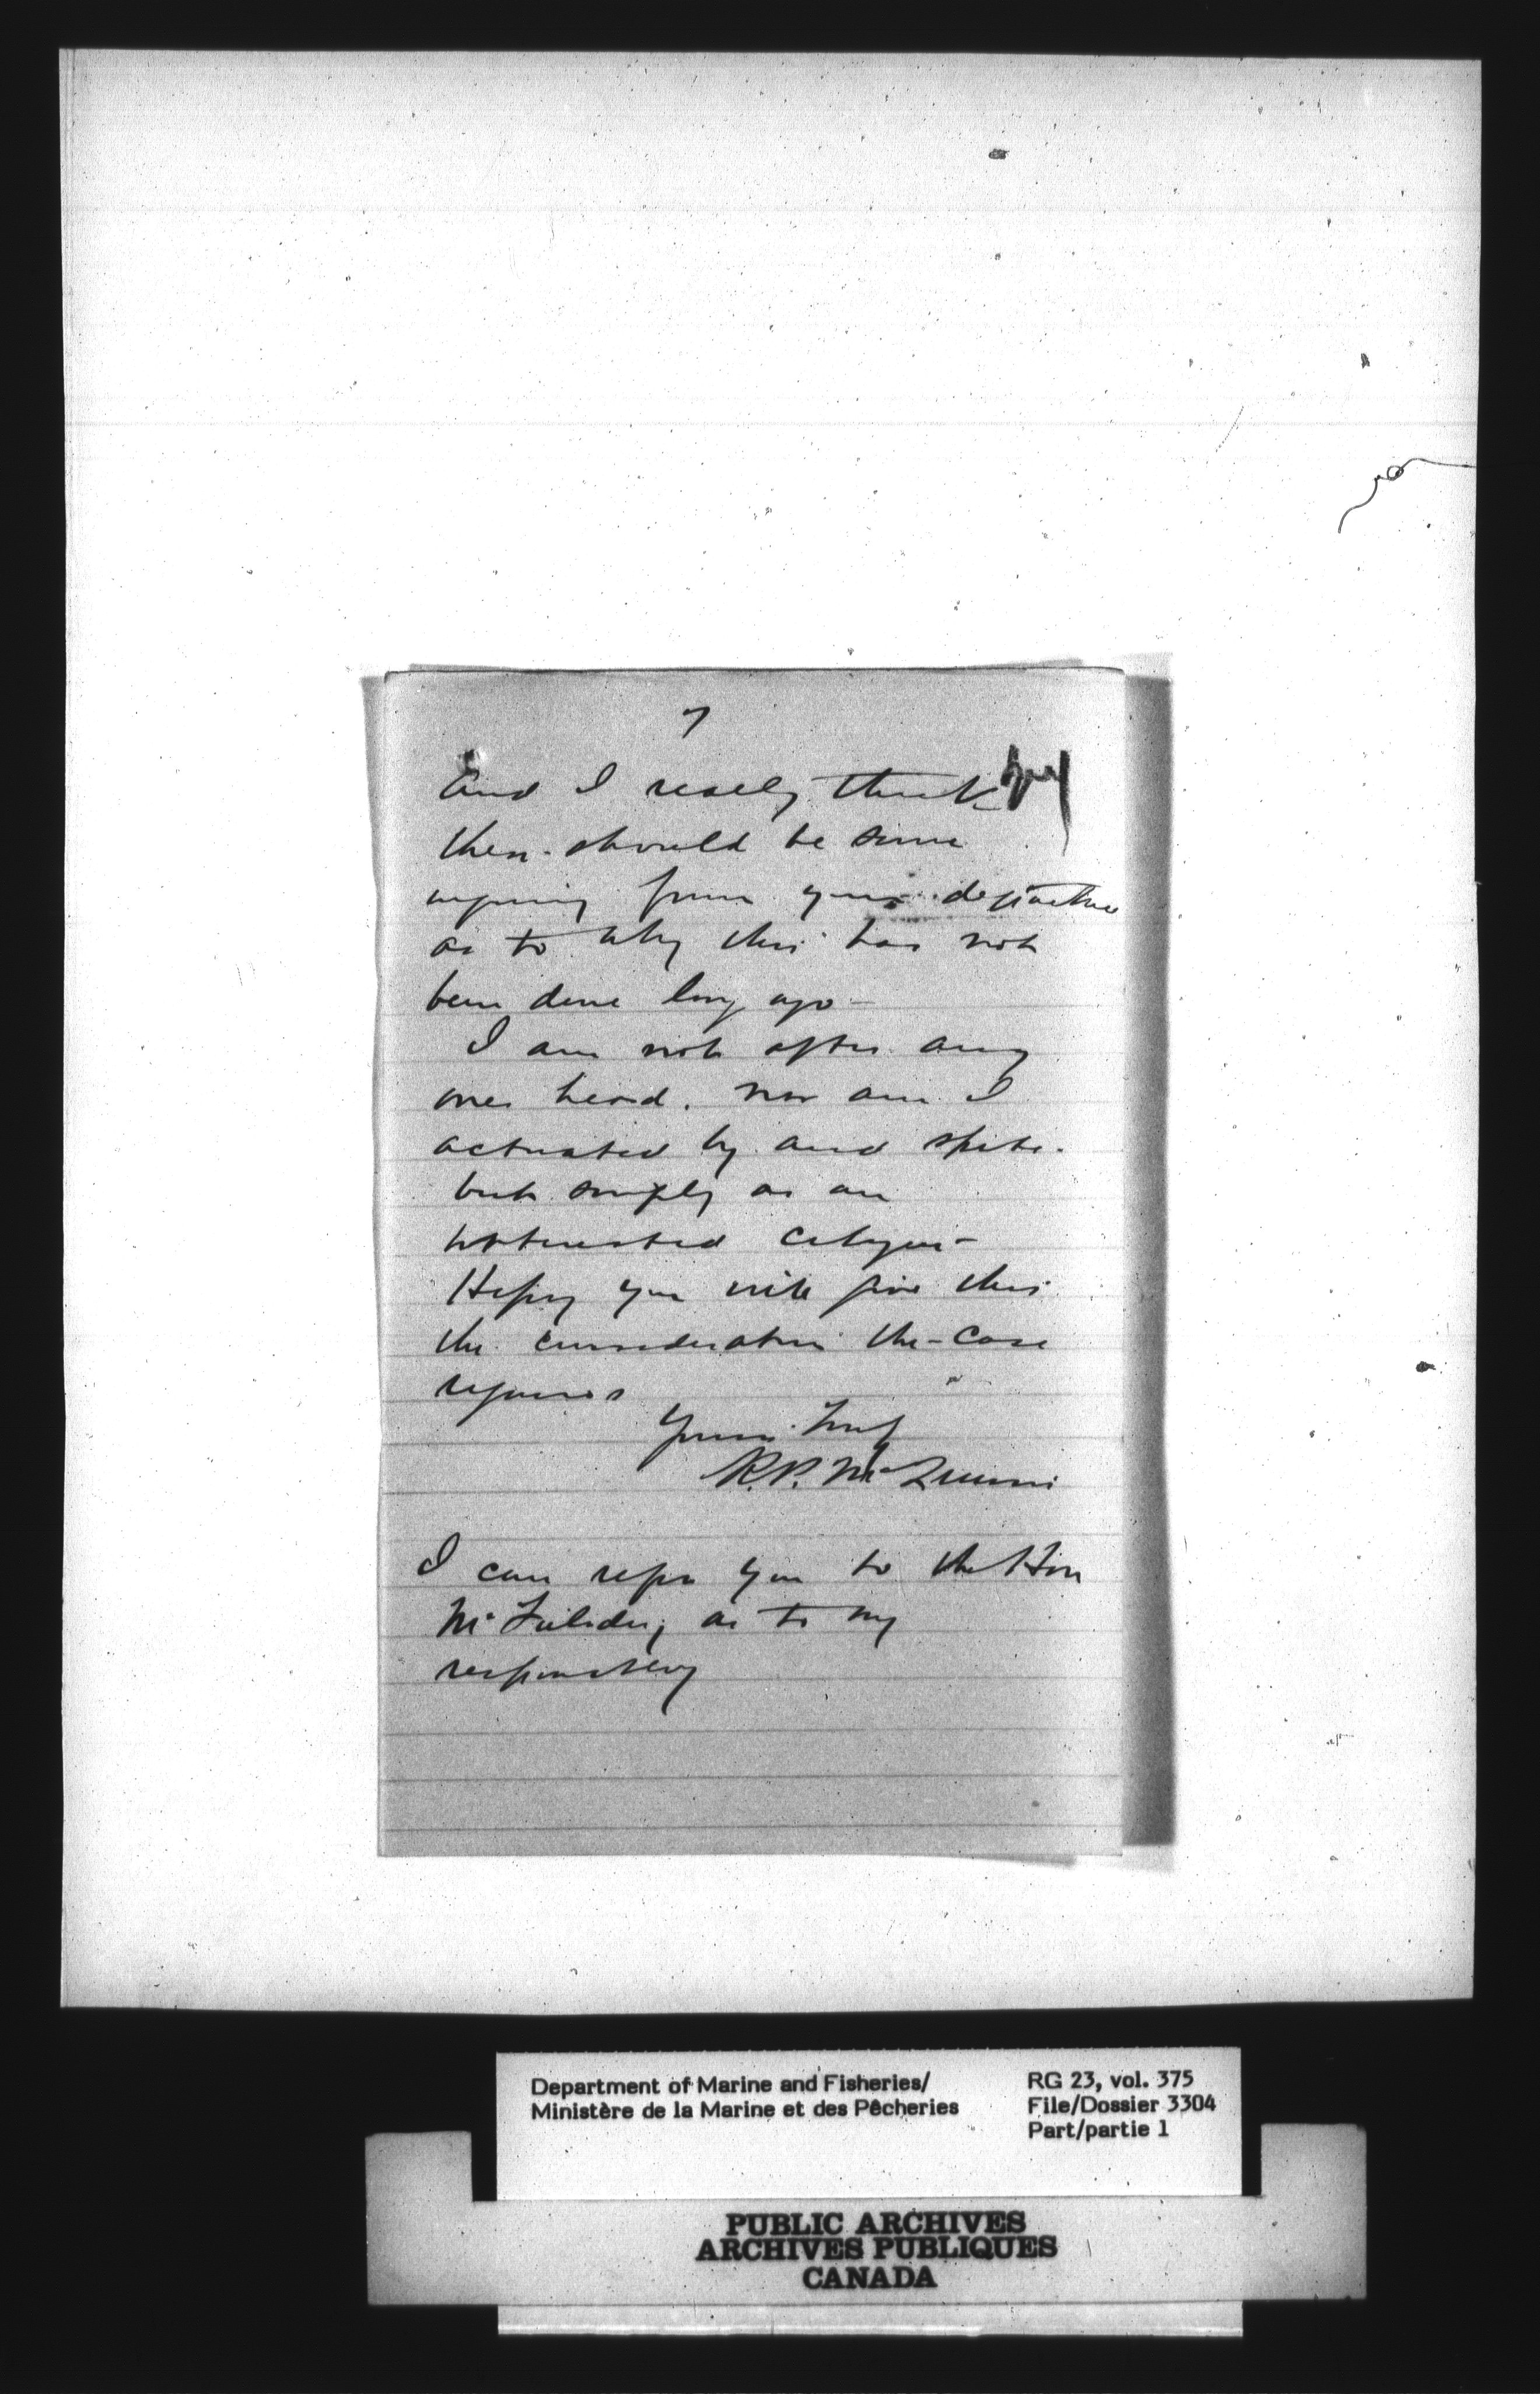 7
And I really think
there should be some
inquiry from your department
as to why this has not
been done long ago –
I am not after any
ones head. nor am I
actuated by and spite.
but simply as an
interested citizen –
Hoping you will give this
the consideration the case
requires
Yours truly
R.P. Mc
I can refer you to the Hon
as to my
responsibility
Department of Marine and Fisheries/
Ministère de la Marine et des Pêcheries
RG 23, vol. 375
File/Dossier 3304
Part/partie 1
PUBLIC ARCHIVES
ARCHIVES PUBLIQUES
CANADA